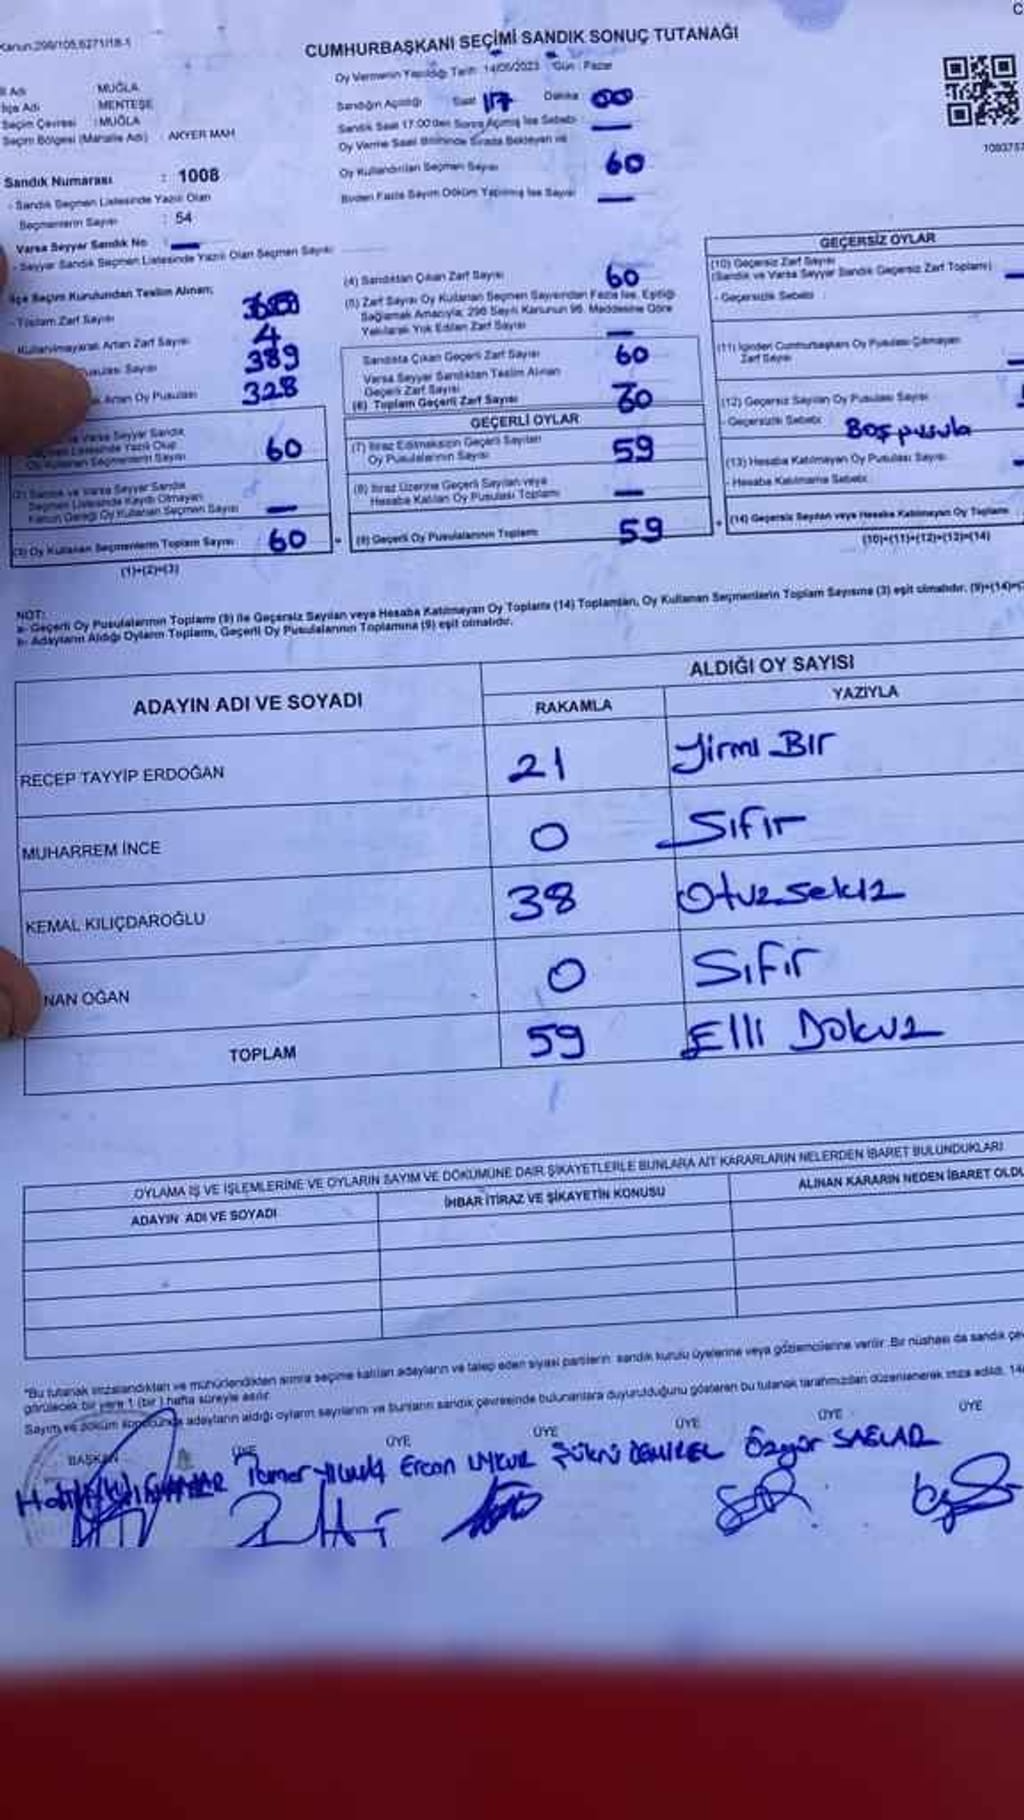 Kanun:298/105,6271/18-1
CUMHURBAŞKANI SEÇİMİ SANDIK SONUÇ TUTANAĞI
Oy Vermenin Yapıldığı Tarih: 14/05/2023 Gün: Pazar
İl Adı : MUĞLA
İlçe Adı : MENTEŞE
Seçim Çevresi : MUĞLA
Seçim Bölgesi (Mahalle Adı) : AKYER MAH
Sandığın Açıldığı Saat 17 Dakika 00
Sandık Saat 17:00'den Sonra Açılmış İse Sebebi
Oy Verme Saati Bitiminde Sırada Bekleyen ve
Oy Kullandırılan Seçmen Sayısı 60
Birden Fazla Sayım Döküm Yapılmış İse Sayısı —
109375
Sandık Numarası : 1008
- Sandık Seçmen Listesinde Yazılı Olan
Seçmenlerin Sayısı : 54
Varsa Seyyar Sandık No : —
- Seyyar Sandık Seçmen Listesinde Yazılı Olan Seçmen Sayısı
İlçe Seçim Kurulundan Teslim Alınan;
- Toplam Zarf Sayısı
Kullanılmayarak Artan Zarf Sayısı 4
Pusulası Sayısı 389
Artan Oy Pusulası 328
ve Varsa Seyyar Sandık
Seçmen Listesinde Yazılı Olup
Oy Kullanan Seçmenlerin Sayısı 60
(2) Sandık ve Varsa Seyyar Sandık
Seçmen Listesinde Kaydı Olmayan
Kanun Gereği Oy Kullanan Seçmen Sayısı —
(3) Oy Kullanan Seçmenlerin Toplam Sayısı 60
(1)+(2)=(3)
(4) Sandıktan Çıkan Zarf Sayısı 60
(5) Zarf Sayısı Oy Kullanan Seçmen Sayısından Fazla İse, Eşitliği
Sağlamak Amacıyla; 298 Sayılı Kanunun 98. Maddesine Göre
Yakılarak Yok Edilen Zarf Sayısı —
Sandıkta Çıkan Geçerli Zarf Sayısı 60
Varsa Seyyar Sandıktan Teslim Alınan
Geçerli Zarf Sayısı
(6) Toplam Geçerli Zarf Sayısı 60
GEÇERLİ OYLAR
(7) İtiraz Edilmeksizin Geçerli Sayılan
Oy Pusulalarının Sayısı 59
(8) İtiraz Üzerine Geçerli Sayılan veya
Hesaba Katılan Oy Pusulası Toplamı —
(9) Geçerli Oy Pusulalarının Toplamı 59
GEÇERSİZ OYLAR
(10) Geçersiz Zarf Sayısı
(Sandık ve Varsa Seyyar Sandık Geçersiz Zarf Toplamı)
- Geçersizlik Sebebi :
(11) İçinden Cumhurbaşkanı Oy Pusulası Çıkmayan
Zarf Sayısı
(12) Geçersiz Sayılan Oy Pusulası Sayısı
- Geçersizlik Sebebi: Boş pusula
(13) Hesaba Katılmayan Oy Pusulası Sayısı
- Hesaba Katılmama Sebebi:
(14) Geçersiz Sayılan veya Hesaba Katılmayan Oy Toplamı
(10)+(11)+(12)+(13)=(14)
NOT:
a- Geçerli Oy Pusulalarının Toplamı (9) ile Geçersiz Sayılan veya Hesaba Katılmayan Oy Toplamı (14) Toplamları, Oy Kullanan Seçmenlerin Toplam Sayısına (3) eşit olmalıdır. (9)+(14)=
b- Adayların Aldığı Oyların Toplamı, Geçerli Oy Pusulalarının Toplamına (9) eşit olmalıdır.
ADAYIN ADI VE SOYADI
ALDIĞI OY SAYISI
RAKAMLA YAZIYLA
RECEP TAYYİP ERDOĞAN 21 Yirmi Bir
MUHARREM İNCE 0 Sıfır
KEMAL KILIÇDAROĞLU 38 Otuz sekiz
NAN OĞAN 0 Sıfır
TOPLAM 59 Elli Dokuz
OYLAMA İŞ VE İŞLEMLERİNE VE OYLARIN SAYIM VE DÖKÜMÜNE DAİR ŞİKAYETLERLE BUNLARA AİT KARARLARIN NELERDEN İBARET BULUNDUKLARI
ADAYIN ADI VE SOYADI
İHBAR İTİRAZ VE ŞİKAYETİN KONUSU
ALINAN KARARIN NEDEN İBARET OLDU
*Bu tutanak imzalandıktan ve mühürlendikten sonra seçime katılan adayların ve talep eden siyasi partilerin sandık kurulu üyelerine veya gözlemcilerine verilir. Bir nüshası da sandık çev
görülecek bir yere 1 (bir) hafta süreyle asılır.
Sayım ve döküm sonucunda adayların aldığı oyların sayılarını ve bunların sandık çevresinde bulunanlara duyurulduğunu gösteren bu tutanak tarafımızdan düzenlenerek imza edildi. 14
BAŞKAN ÜYE ÜYE ÜYE ÜYE ÜYE ÜYE
Ercan UYKUR Şükrü DEMİREL Özgür SAĞLAR